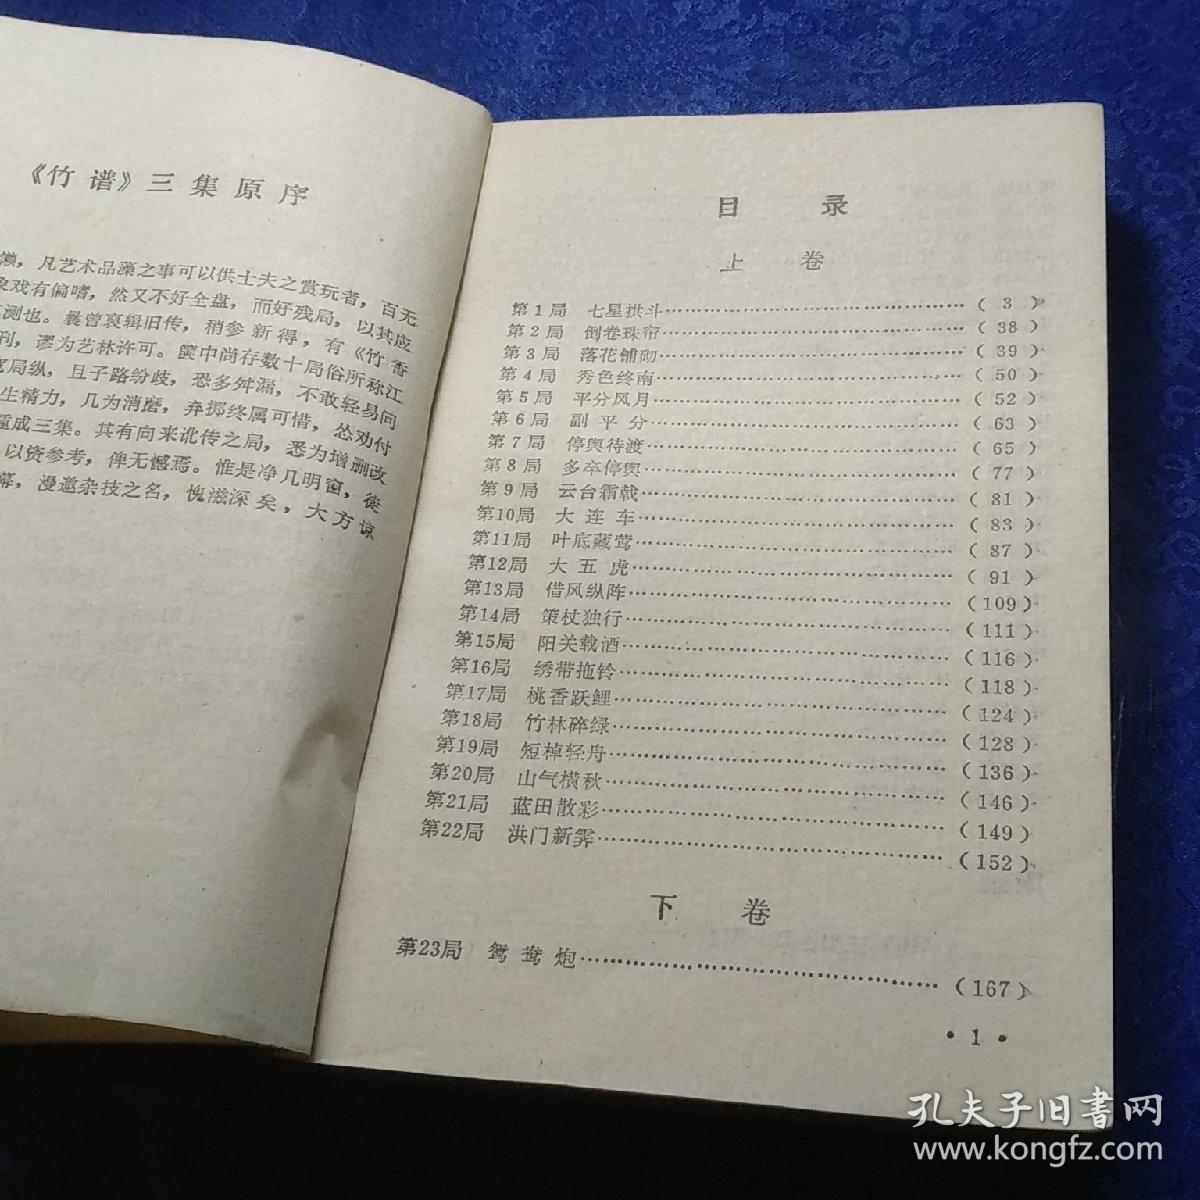 《竹谱》三集原序
懒，凡艺术品藻之事可以供士夫之赏玩者，百无
象戏有偏嗜，然又不好全盘，而好残局，以其应
测也。曩曾裒辑旧传，稍参新得，有《竹香
刊，谬为艺林许可。箧中尚存数十局俗所称江
局纵，且子路纷歧，恐多舛漏，不敢轻易问
生精力，几为消磨，弃掷终属可惜，怂劝付
重成三集。其有向来讹传之局，悉为增删改
以资参考，俾无憾焉。惟是净几明窗，徒
幕，漫邀杂技之名，愧滋深矣，大方谅
目 录
上 卷
第1局 七星拱斗……（3）
第2局 倒卷珠帘……（38）
第3局 落花铺砌……（39）
第4局 秀色终南……（50）
第5局 平分风月……（52）
第6局 副平分……（63）
第7局 停舆待渡……（65）
第8局 多卒停舆……（77）
第9局 云台霜戟……（81）
第10局 大连车……（83）
第11局 叶底藏莺……（87）
第12局 大五虎……（91）
第13局 借风纵阵……（109）
第14局 策杖独行……（111）
第15局 阳关载酒……（116）
第16局 绣带拖铃……（118）
第17局 桃香跃鲤……（124）
第18局 竹林碎绿……（128）
第19局 短棹轻舟……（136）
第20局 山气横秋……（146）
第21局 蓝田散彩……（149）
第22局 洪门新霁……（152）
下 卷
第23局 鸳鸯炮……（167）
• 1 •
孔夫子旧书网
www.kongfz.com